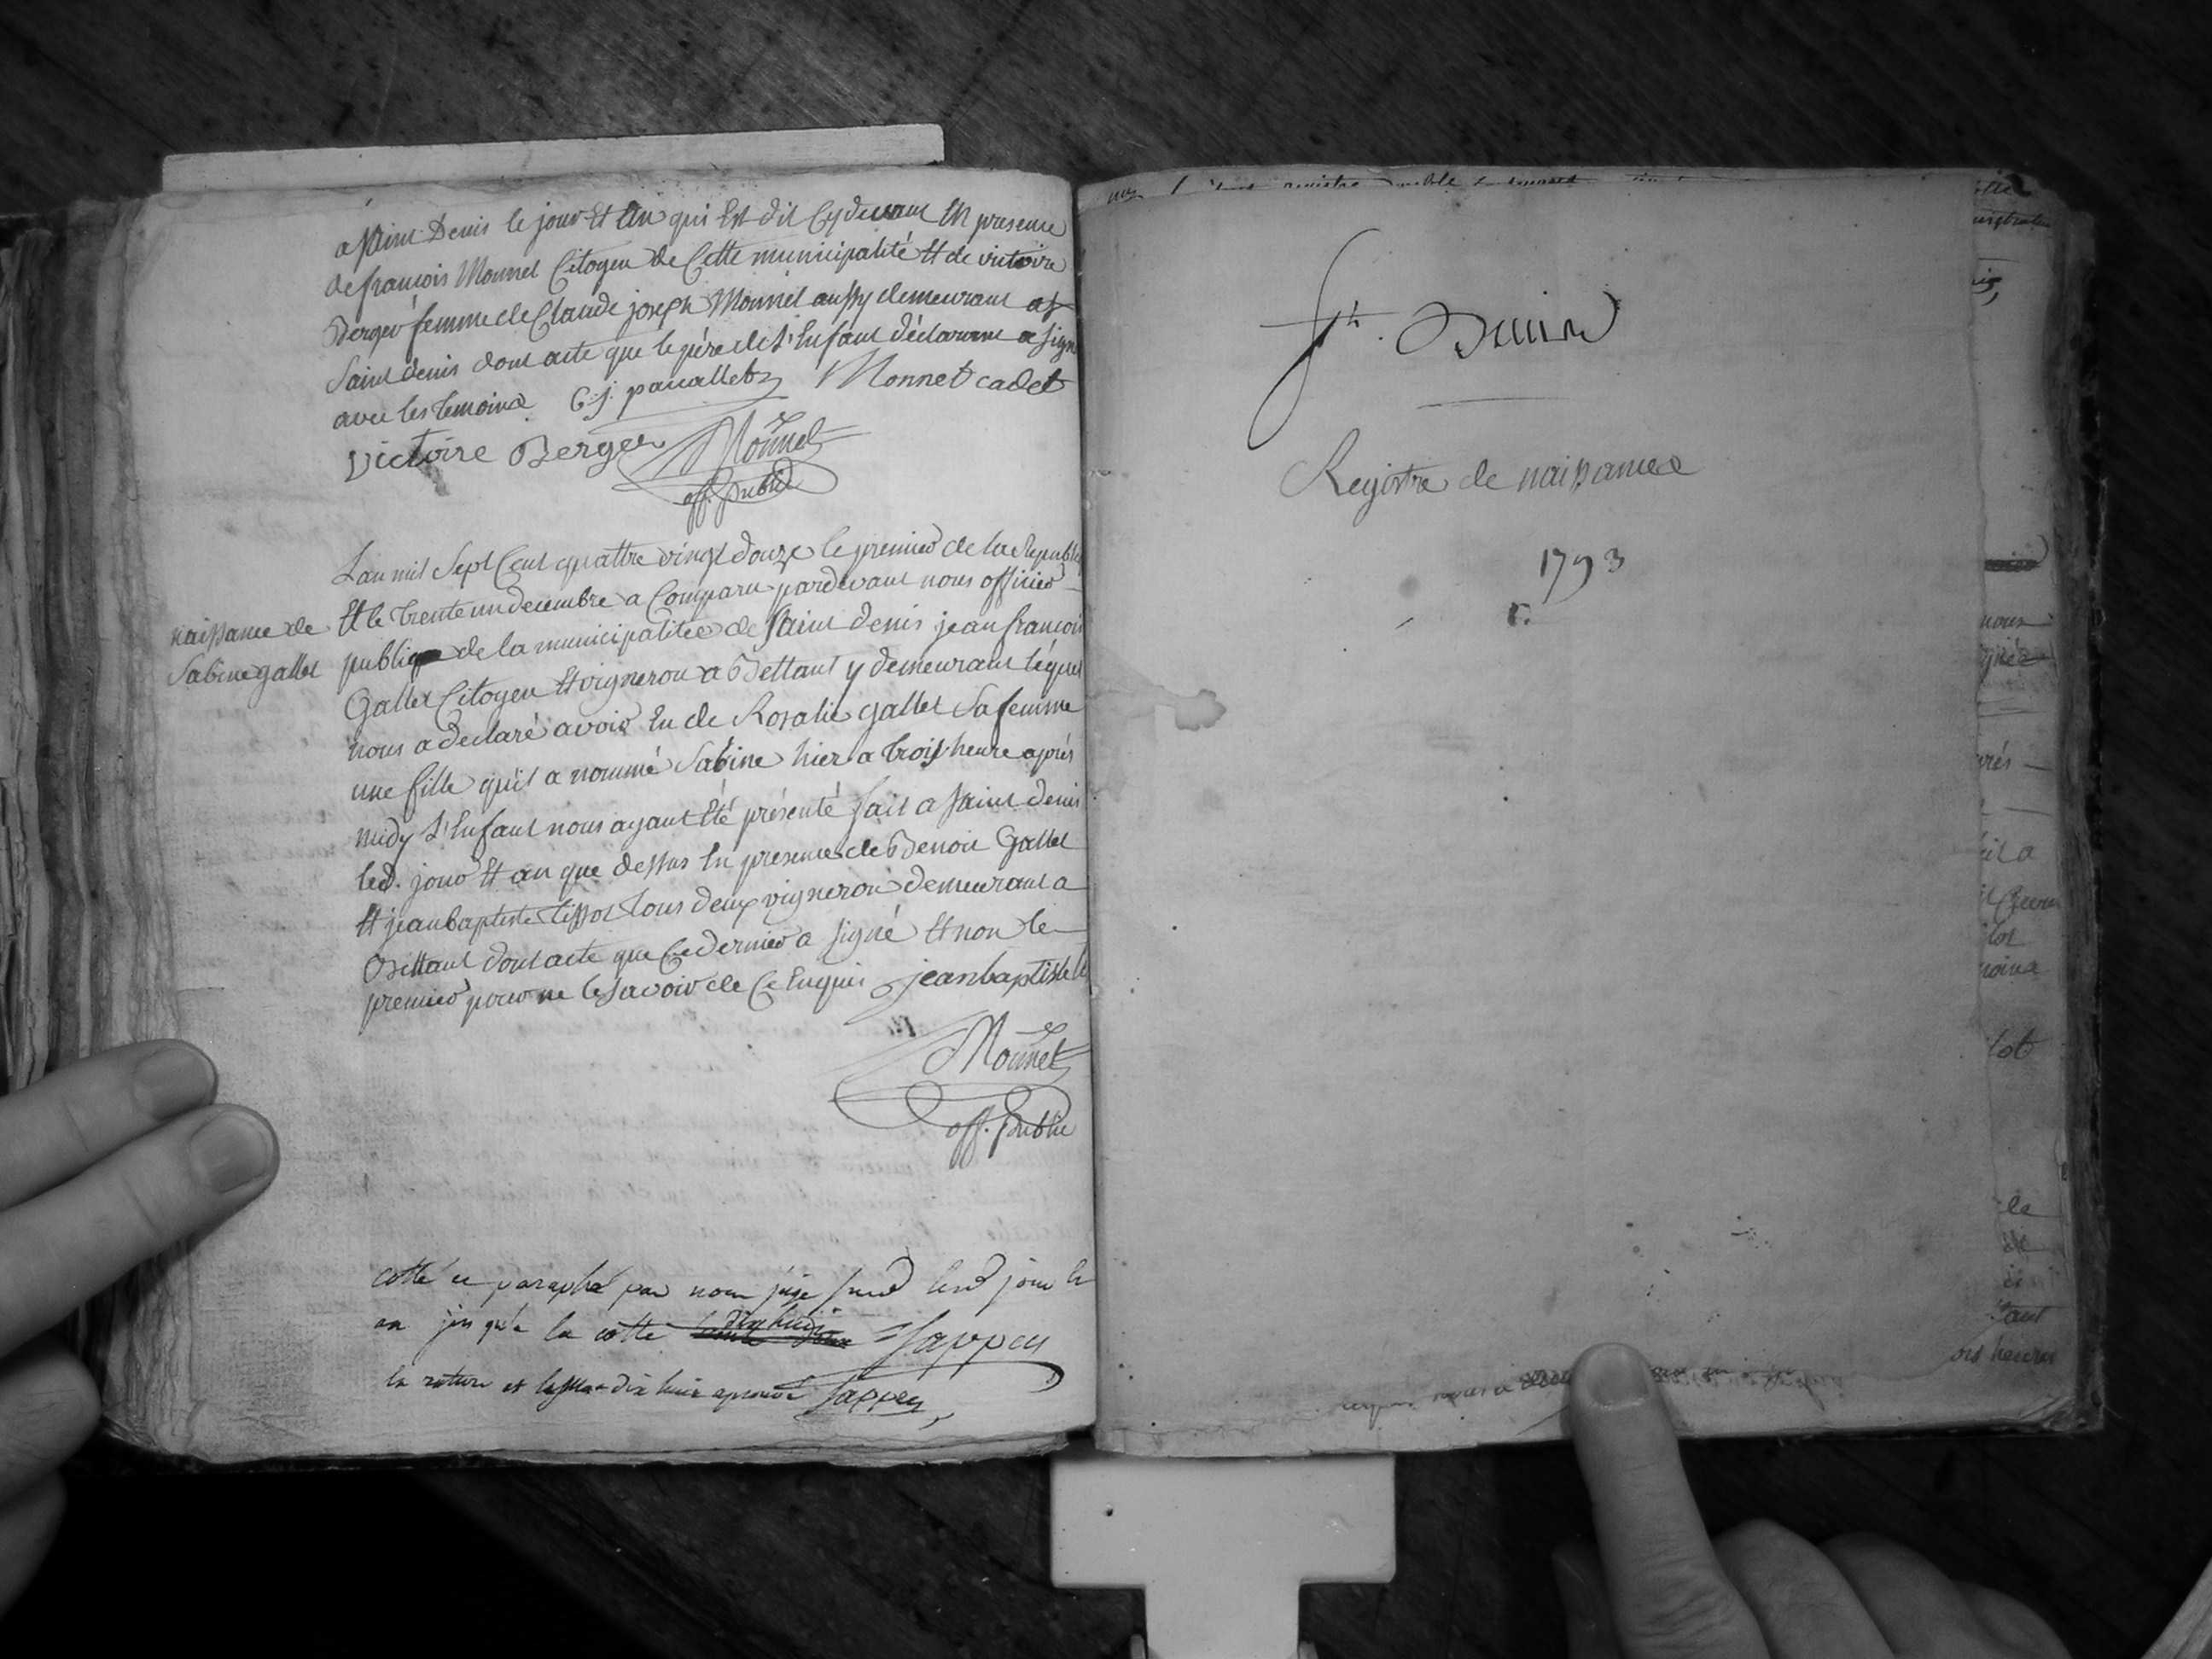 a saint Denis le jour Et An qui Est dit Cydevant En presence
de françois Monnet Citoyen de Cette municipalité Et de victoire
Berger femme de Claude joseph Monnet aussy demeurant a
Saint denis dont acte que le père de L'Enfant déclarant a signé
avec les temoins C. j. pauallet Monnet cadet
Victoire Berger Monnet
off. public
naissance de
Sabine gallet
L'an mil Sept Cent quattre vingt douze le premier de la Republi
Et le trente un decembre a Comparu pardevant nous officier
public de la municipalitée de Saint denis jean françois
Gallet Citoyen Et vigneron a Bettant y demeurant léquel
nous a declaré avoir Eu de Rosalie gallet Sa femme
une fille qu'il a nommé Sabine hier a trois heure après
midy L'Enfant nous ayant Eté présenté fait a Saint denis
led. jour Et an que dessus En presence de Benoit Gallet
Et jean baptiste tissot tous deux vigneron demeurant a
Bettant dont acte que Ce dernier a signé Et non le
premier pour ne le Savoir de Ce Enquis jean baptiste
Monnet
off. public
cotté et paraphé par nous juge led jour et
an jusqu'a la cotte dix huit Sappey
la rature et dix huit aprouvé Sappey
St. Denis
Registre de naissances
1793